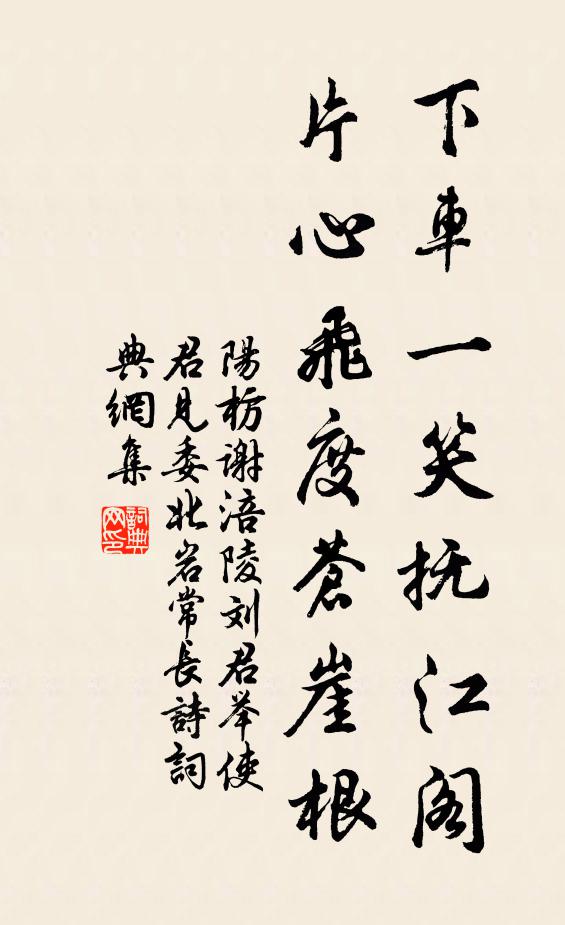 下車一笑抚江阁
片心飛度蒼崖根
陽枋谢涪陵刘君举使
君見委北岩常長詩詞
典網集
詞典网印